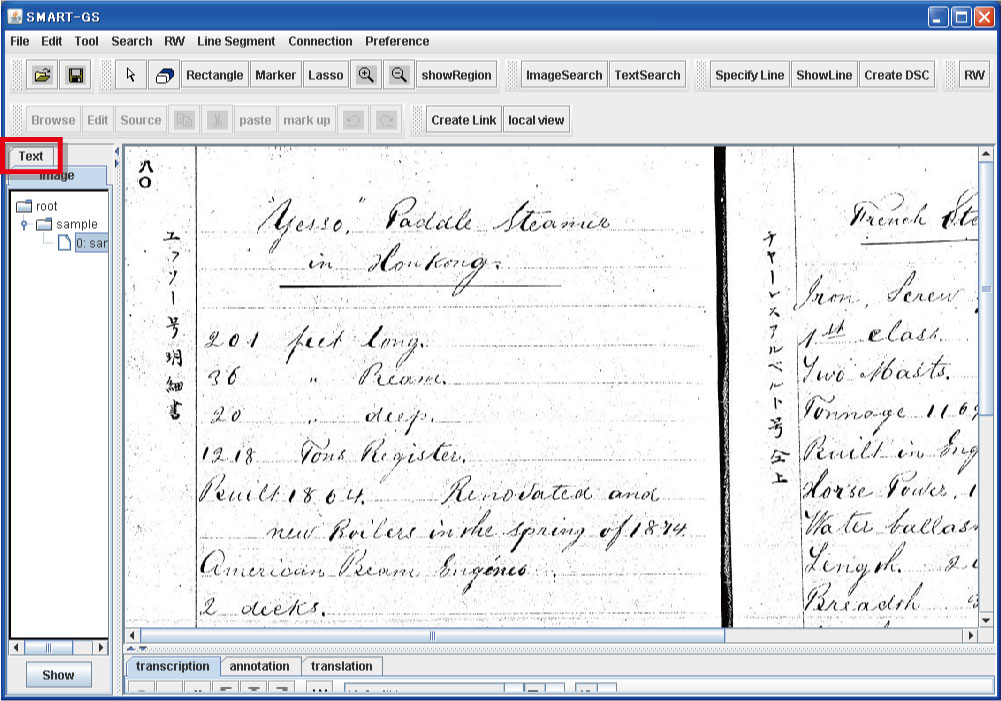 SMART-GS
File Edit Tool Search RW Line Segment Connection Preference
Rectangle Marker Lasso showRegion ImageSearch TextSearch Specify Line ShowLine Create DSC RW
Browse Edit Source paste mark up Create Link local view
Text
Image
root
sample
0: sar
八〇
エッソー号明細書
"Yesso," Paddle Steamer
in Honkong.
201 feet long.
36 " Beam.
20 " deep.
1218 Tons Register.
Built 1864. Renovated and
new Boilers in the spring of 1874.
American Beam Engines.
2 decks.
French Ste
Iron, Screw
1st class.
Two Masts.
Tonnage 1169
Built in Eng
Horse Power, 1
Water ballas
Length. 2
Breadth 3
Show
transcription annotation translation